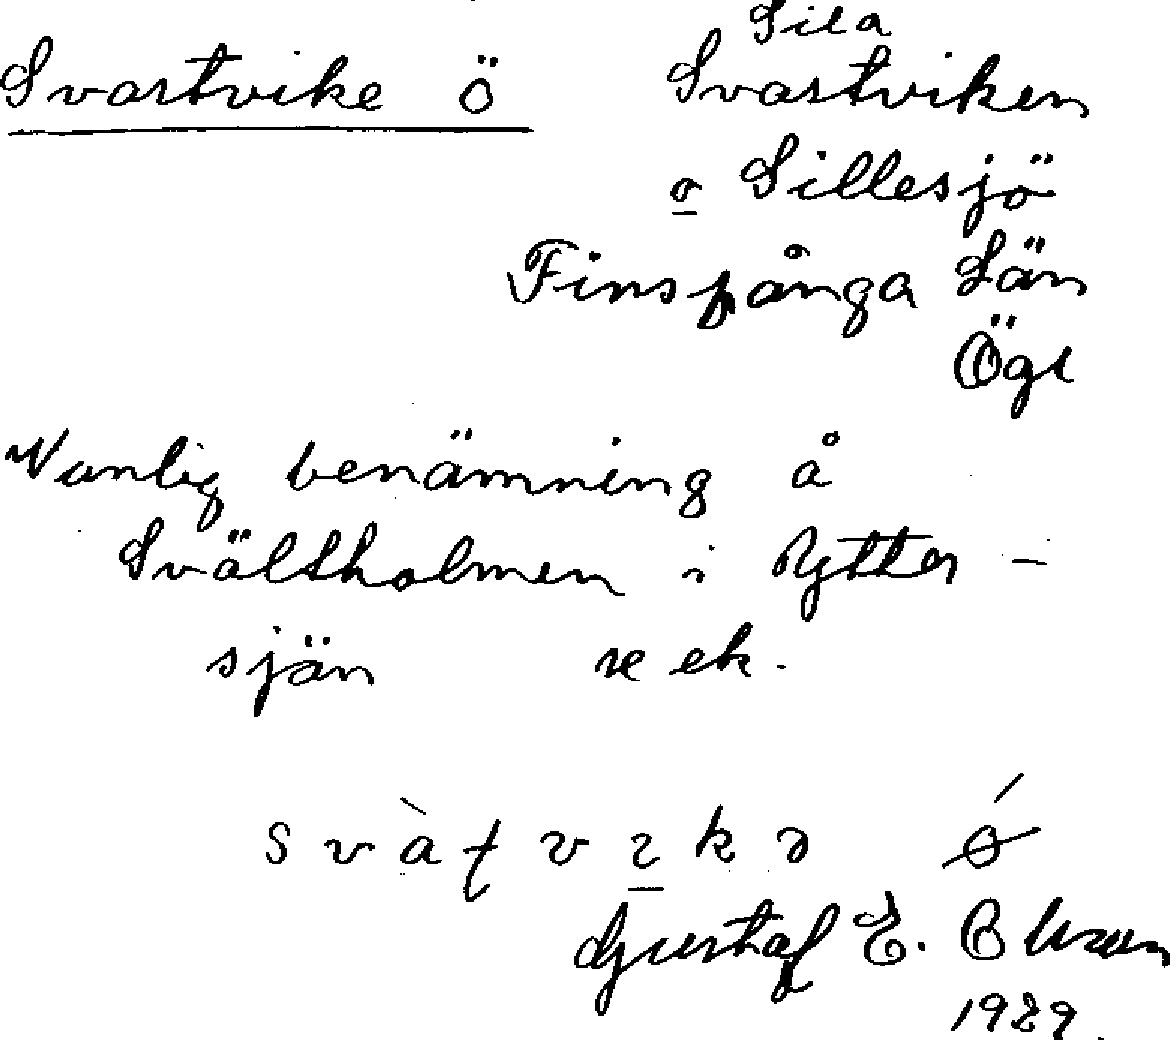 Sila
Svartvike ö Svartviken
o Sillesjö
Finspånga Län
Ögl
Vanlig benämning å
Svältholmen i Rytter-
sjän se ek.
svàtvıkə ǿ
Gustaf E. Olsson
1929.